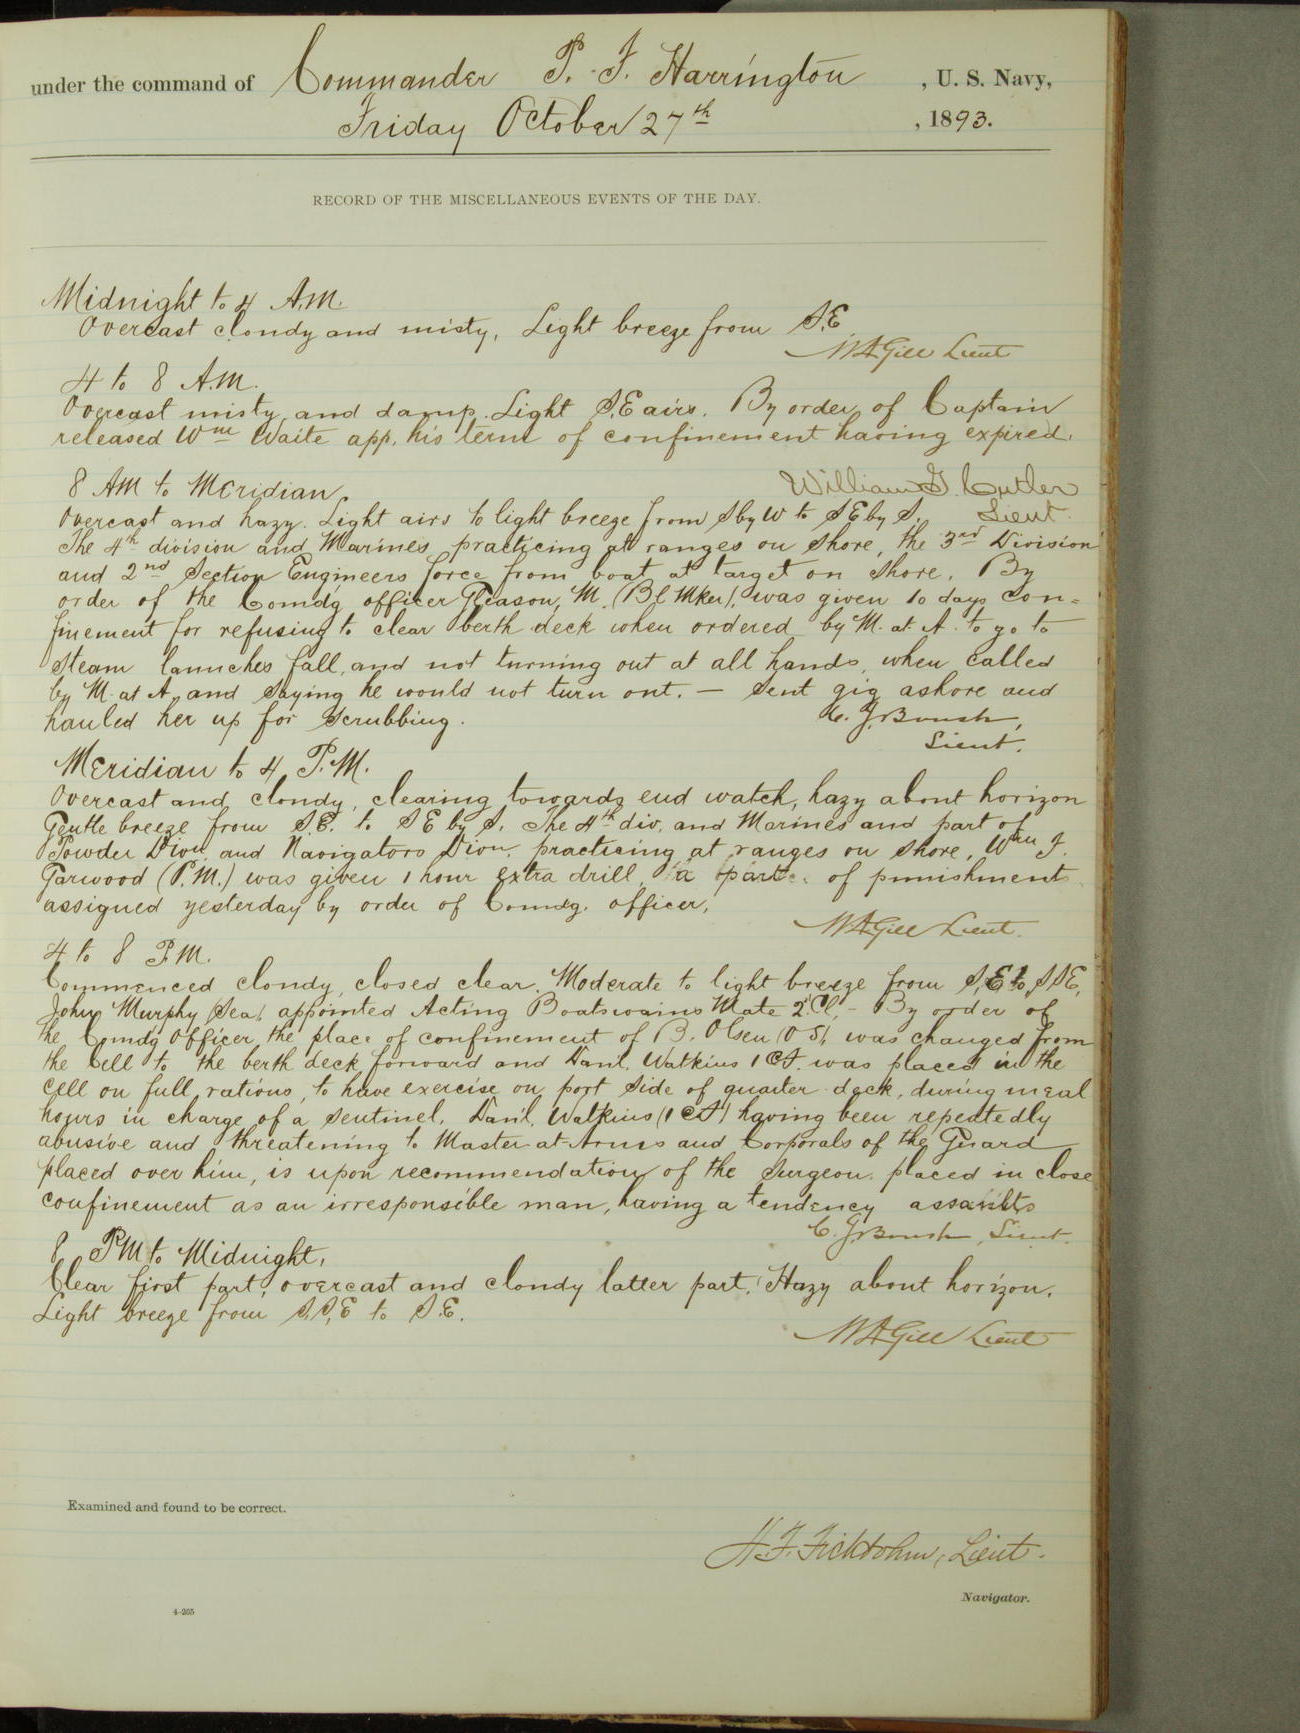 under the command of Commander P. F. Harrington, U. S. Navy,
Friday October 27th, 1893.
RECORD OF THE MISCELLANEOUS EVENTS OF THE DAY.
Midnight to 4 A.M.
Overcast cloudy and misty, Light breeze from S.E.
W A Gill Lieut
4 to 8 A.M.
Overcast misty and damp. Light S.E airs. By order of Captain
released Wm Waite app. his term of confinement having expired.
William G. Cutler
Lieut.
8 AM to Meridian.
Overcast and hazy. Light airs to light breeze from S by W to S E by S.
The 4th division and Marines practicing at ranges on shore, the 3rd Division
and 2nd Section Engineers force from boat at target on shore. By
order of the Comdg officer Gleason, M. (B'l'Mker). was given 10 days con=
finement for refusing to clear berth deck when ordered by M. at. A. to go to
steam launches fall, and not turning out at all hands, when called
by M. at A. and saying he would not turn out. — Sent gig ashore and
hauled her up for scrubbing.
C. J. Boush,
Lieut.
Meridian to 4 P.M.
Overcast and cloudy, clearing towards end watch, hazy about horizon
Gentle breeze from S.E. to S E by S. The 4th div. and Marines and part of
Powder Divn. and Navigators Divn. practicing at ranges on shore. Wm J.
Garwood (P.M.) was given 1 hour extra drill, a part of punishment
assigned yesterday by order of Comdg. officer.
W A Gill Lieut.
4 to 8 P.M.
Commenced cloudy, closed clear. Moderate to light breeze from S.E to S.S.E.
John Murphy Sea. appointed Acting Boatswains Mate 2" Cl. – By order of
the Comdg Officer the place of confinement of B. Olsen (O S). was changed from
the Cell to the berth deck forward and Danl. Watkins 1 CF. was placed in the
cell on full rations, to have exercise on port side of quarter deck, during meal
hours in charge of a sentinel. Dan'l. Watkins (1 CF) having been repeatedly
abusive and threatening to Master-at-Arms and Corporals of the Guard
placed over him, is upon recommendation of the Surgeon. placed in close
confinement as an irresponsible man, having a tendency assaults
C. J. Boush, Lieut.
8 PM to Midnight.
Clear first part, overcast and cloudy latter part. Hazy about horizon.
Light breeze from S.S.E to S.E.
W A Gill Lieut
Examined and found to be correct.
H. F. Fickbohm, Lieut.
Navigator.
4–205